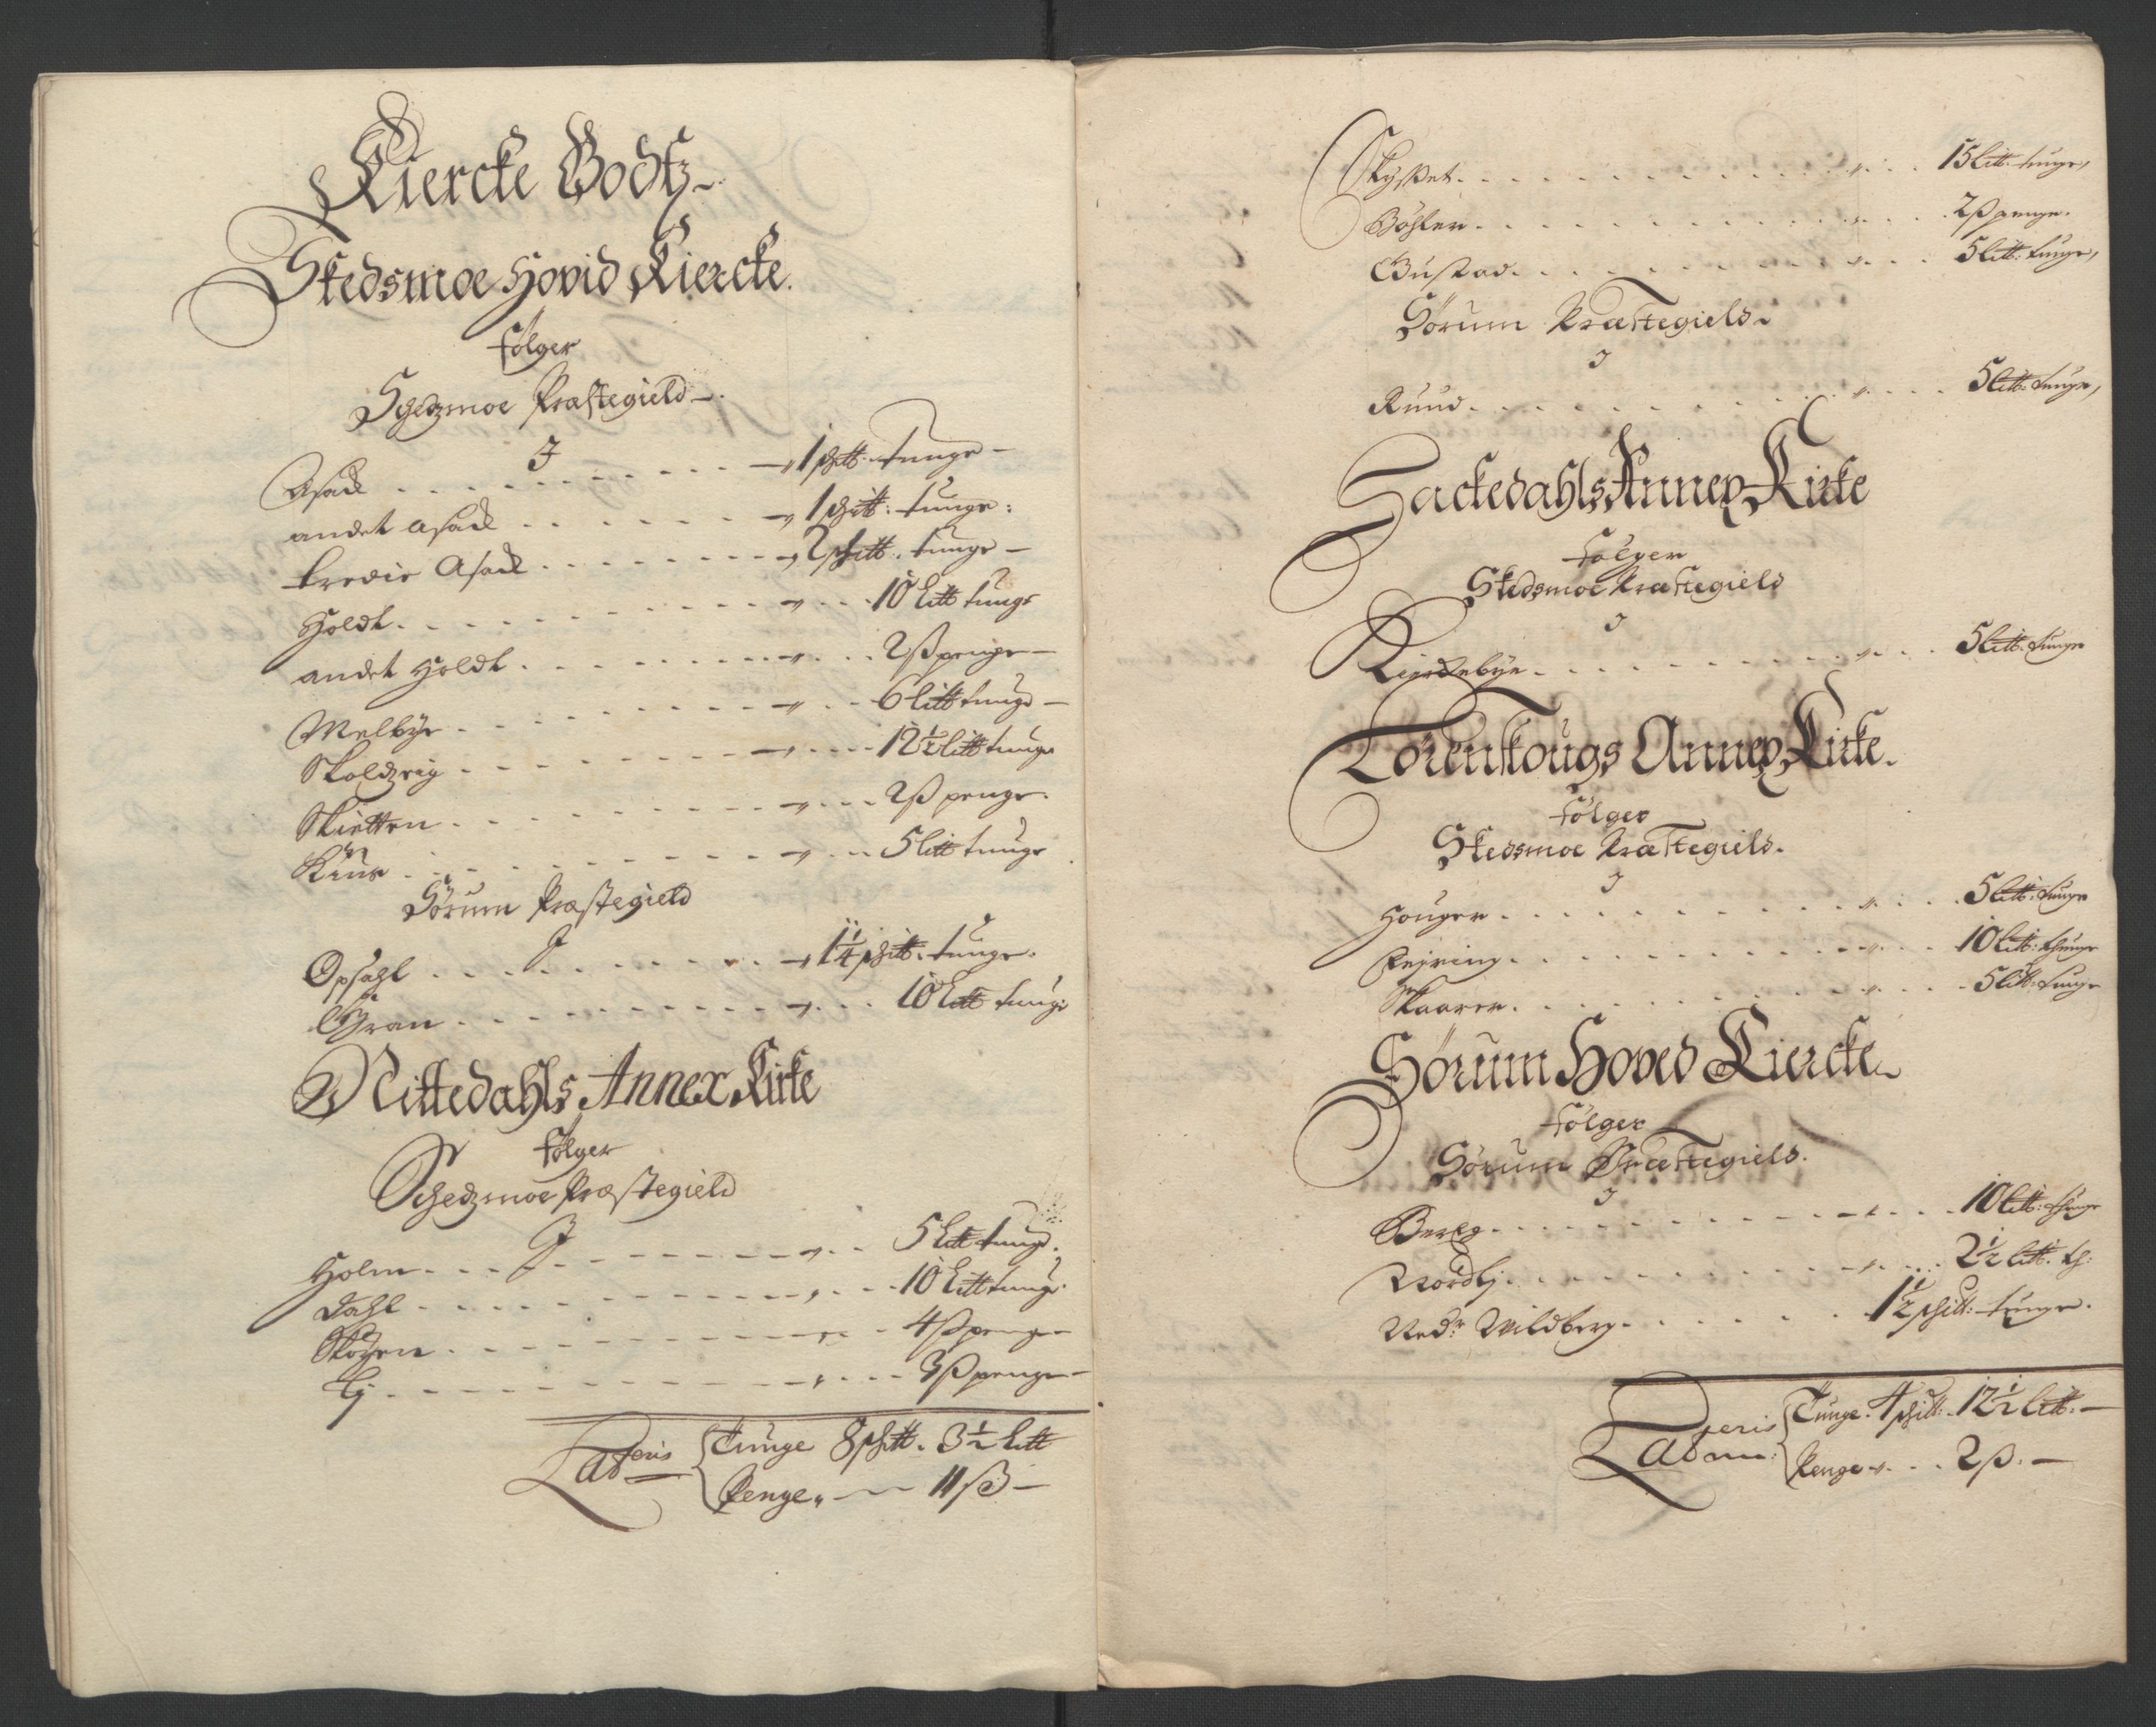 Kiercke Godtz
Skedsmoe Hovid Kiercke.
følger
Schedzmoe Præstegield
J
Asack - - - 1 schitt: tunge
andet Asack - - - 1 schitt: tunge:
tredie Asack - - - 2 schitt: tunge
Holdt - - - 10 litt tunge
andet Holdt - - - 2 ß penge
Melbye - - - 6 litt tunge
Skoldzrig - - - 12½ litt tunge
Skietten - - - 2 ß penge.
- - - 5 litt tunge
Sørum Præstegield
J
Opsahl - - - 1¼ schitt: tunge.
Gran - - - 10 litt tunge
Nittedahls Annex Kirke
følger
Schedzmoe Præstegield
J
Holm - - - 5 litt tunge.
Dahl - - - 10 litt tunge.
Skøyen - - - 4 ß penge
Lj - - - 3 ß penge
Lateris Tunge 8 schitt. 3½ litt
Penge 11 ß
Skysset - - - 15 litt: tunge,
Bøhler - - - 2 ß penge.
Gustad - - - 5 litt: tunge,
Sörum Præstegield
J
Ruud - - - 5 litt: tunge,
Hackedahls Annex Kirke
følger
Skedsmoe Præstegield
J
Kierkebye - - - 5 litt: tunge
Lørenskougs Annex Kirke.
følger
Skedsmoe Præstegield.
J
Houger - - - 5 litt: tunge
Feiring - - - 10 litt: thunge
Skaarer - - - 5 litt: tunge
Sörum Hoved Kiercke
følger
Sörum Præstegield.
J
Berg - - - 10 litt: thunge
Nordlj - - - 2½ litt: th:
Nedr Wildberg - - - 1½ schitt: tunge.
Lateris Tunge. 4 schitt: 12½ litt:
Penge - - - 2 ß.